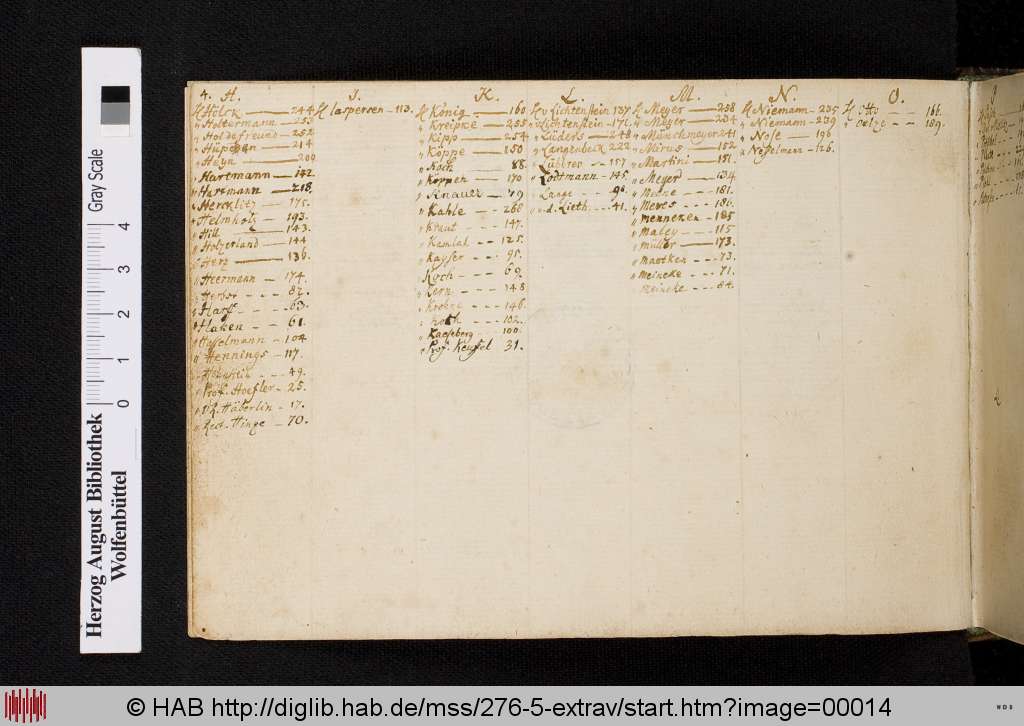 4. H.
H Hölck 244
" Holtermann 253
" Holdefreund 252
" Hüpeden 214
" Heyn 209
" Hartmann 142
" Hartmann 218.
" Hercklitz 175.
" Helmholz 193.
" Hill 143.
" Holzerland 144
" Herz 136.
" Heermann 174.
87.
" Harf 63.
" Haken 61.
" Hasselmann 104
" Hennings 117.
49.
" Prof. Hoefler 25.
Häberlin 17.
" Rect. Hinze 70.
J.
H Jaspersen 113.
K.
H König 160
" Kreipke 255
" Kipp 254
" Köppe 150
" Koch 88
" Köppen 170
" Knauer 79
" Kahle 268
" Kraut 147.
" Kamlah 125.
" Kayser 95.
" Koch 69.
" Kern 148
146.
102.
" Kaeseberg 100.
" Prof. Keuffel 31.
L.
H v Lichtenstein 137
" v Lichtenstein 171
" Lüders 248
" Langenbeck 222
" Lübbers 157
" Lodtmann 145.
" Lange 90.
" v. d. Lieth 41.
M.
H Meyer 258
" Meyer 204
" Münchmeyer 241
" Mirus 152
" Martini 151.
" Meyer 134
181.
" Meves 186.
" Menneken 185
" Maley 115
" Müller 173.
73.
" Meineke 71.
" Meineke 84.
N.
H Niemann 235
" Niemann 239
" Nose 196
126.
O.
H Otto 166.
" Oelze 159.
Herzog August Bibliothek
Wolfenbüttel
Gray Scale
0 1 2 3 4
© HAB http://diglib.hab.de/mss/276-5-extrav/start.htm?image=00014
WDB